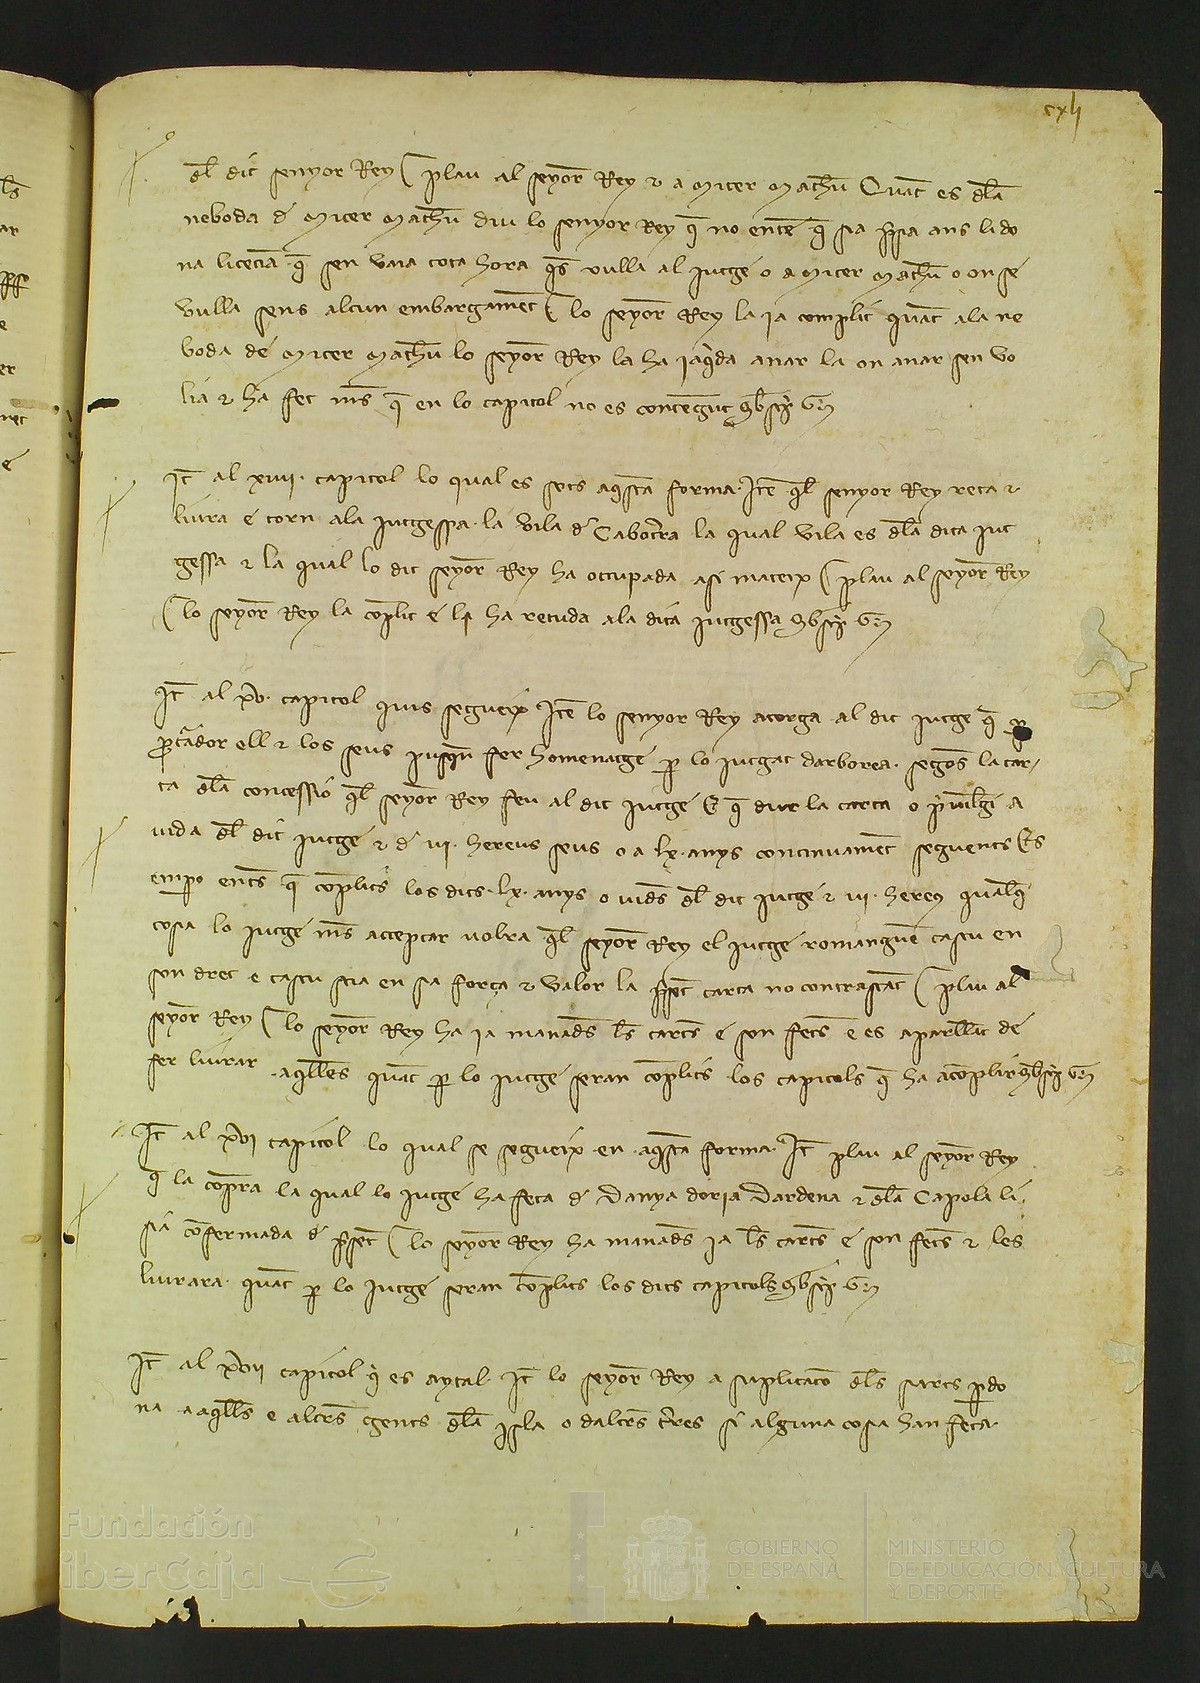 cxlj
dl dit senyor Rey ( plau al seyor Rey & a Micer Macheu Quant es dla
neboda de Micer Macheu diu lo senyor Rey q no enten q sia psa ans li do
na licencia q sen vaia tota hora qs vulla al jutge o a Micer Macheu o on se
vulla sens alcun embargament ( lo seyor Rey la ja complit quant ala ne
boda de Micer Macheu lo seyor Rey la ha jaqida anar la on anar sen vo
lia & ha fet mes q en lo capitol no es contengut
It al xiiii. capitol lo qual es sots aqsta forma. Item ql senyor Rey reta &
liura e torn ala jutgessa. la vila d Cabotra la qual vila es dla dita jut
gessa & la qual lo dit seyor Rey ha occupada asi mateix ( plau al seyor Rey
( lo seyor Rey la complit e la ha retuda ala dita jutgessa
It al xv. capitol quis segueix Item lo senyor Rey atorga al dit jutge q p
pcurador ell & los seus pusquen fer homenatge p lo jutgat darborea. segons la car
ta dla concessio ql seyor Rey feu al dit jutge E q dur la carta o privilegi a
vida dl dit jutge & d iii. hereus seus o a lx. anys continuament seguents Es
empo entes q complits los dits. lx. anys o vides dl dit jutge & iii. hereus qualq
cosa lo jutge mes acceptar volra ql seyor Rey el jutge romanguen cascu en
son dret e cascu stia en sa força & valor la psent carta no contrastant ( plau al
seyor Rey ( lo seyor Rey ha ja manades les cartes e son fetes e es aparellat de
fer liurar aqlles quant p lo jutge seran complits los capitols q ha acomplir
It al xvi capitol lo qual se segueix en aqsta forma. It plau al seyor Rey
q la compra la qual lo jutge ha feta d Danya doria Dardena & dla Capola li
sia confermada d psent ( lo seyor Rey ha manades ja les cartes e son fetes & les
liurara. quant p lo jutge seran complits los dits capitols
It al xvii capitol q es aytal. It lo seyor Rey a suplicacio dls sarts pdo
na a aqlls e altres gents dla isla o daltres terres si alguna cosa han feta.
Fundación
iberCaja
GOBIERNO
DE ESPAÑA
MINISTERIO
DE EDUCACIÓN, CULTURA
Y DEPORTE